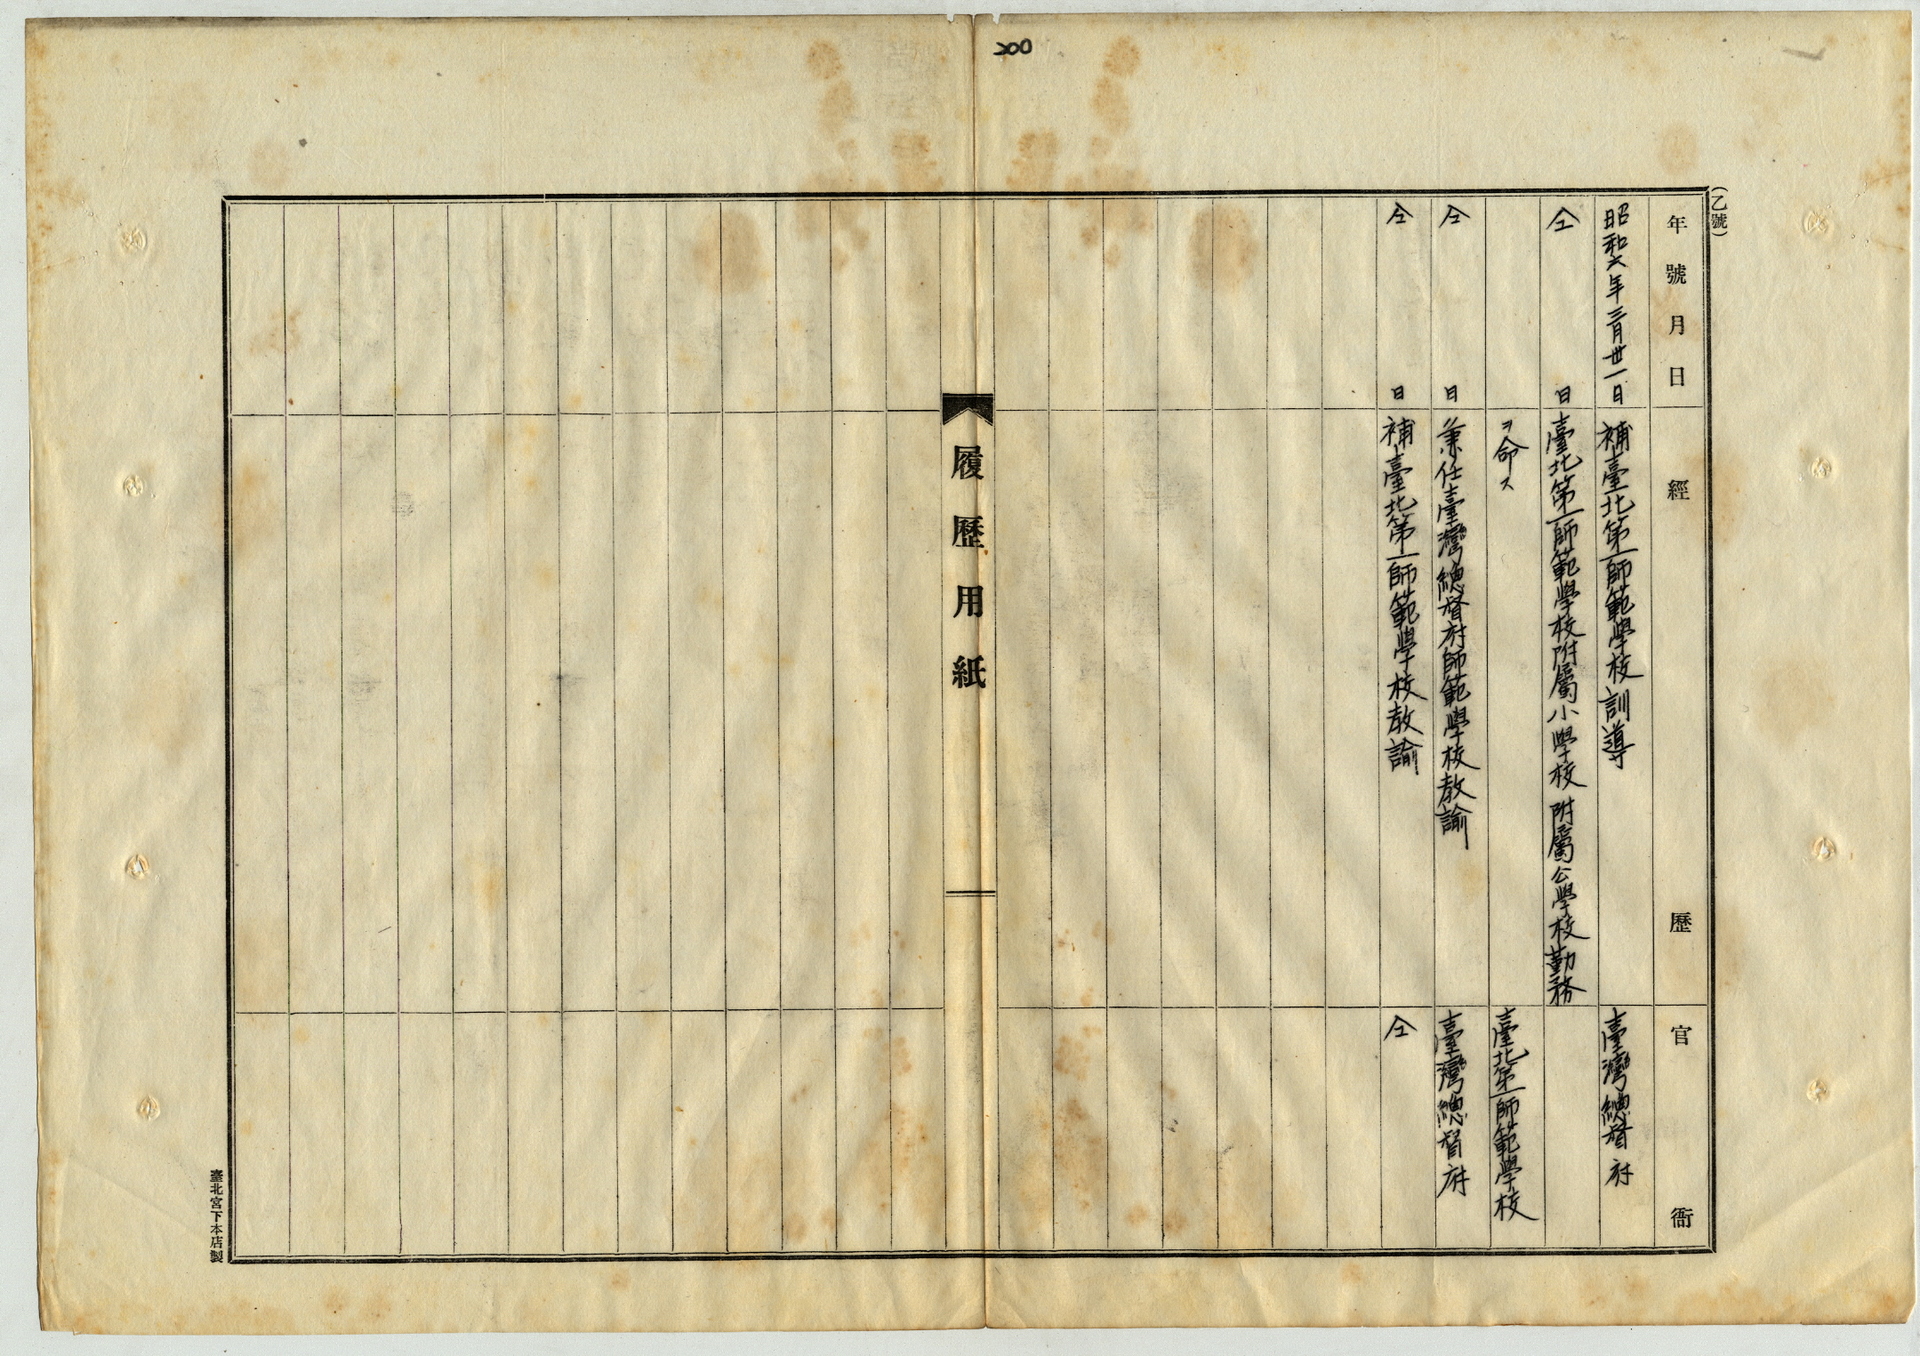 200
(乙號)
年號月日
經歷
官衙
昭和六年三月卅一日
補臺北第一師範學校訓導
臺灣總督府
仝日
臺北第一師範學校附屬小學校附屬公學校勤務
ヲ命ス
臺北第一師範學校
仝日
兼任臺灣總督府師範學校教諭
臺灣總督府
仝日
補臺北第一師範學校教諭
仝
履歷用紙
臺北宮下本店製